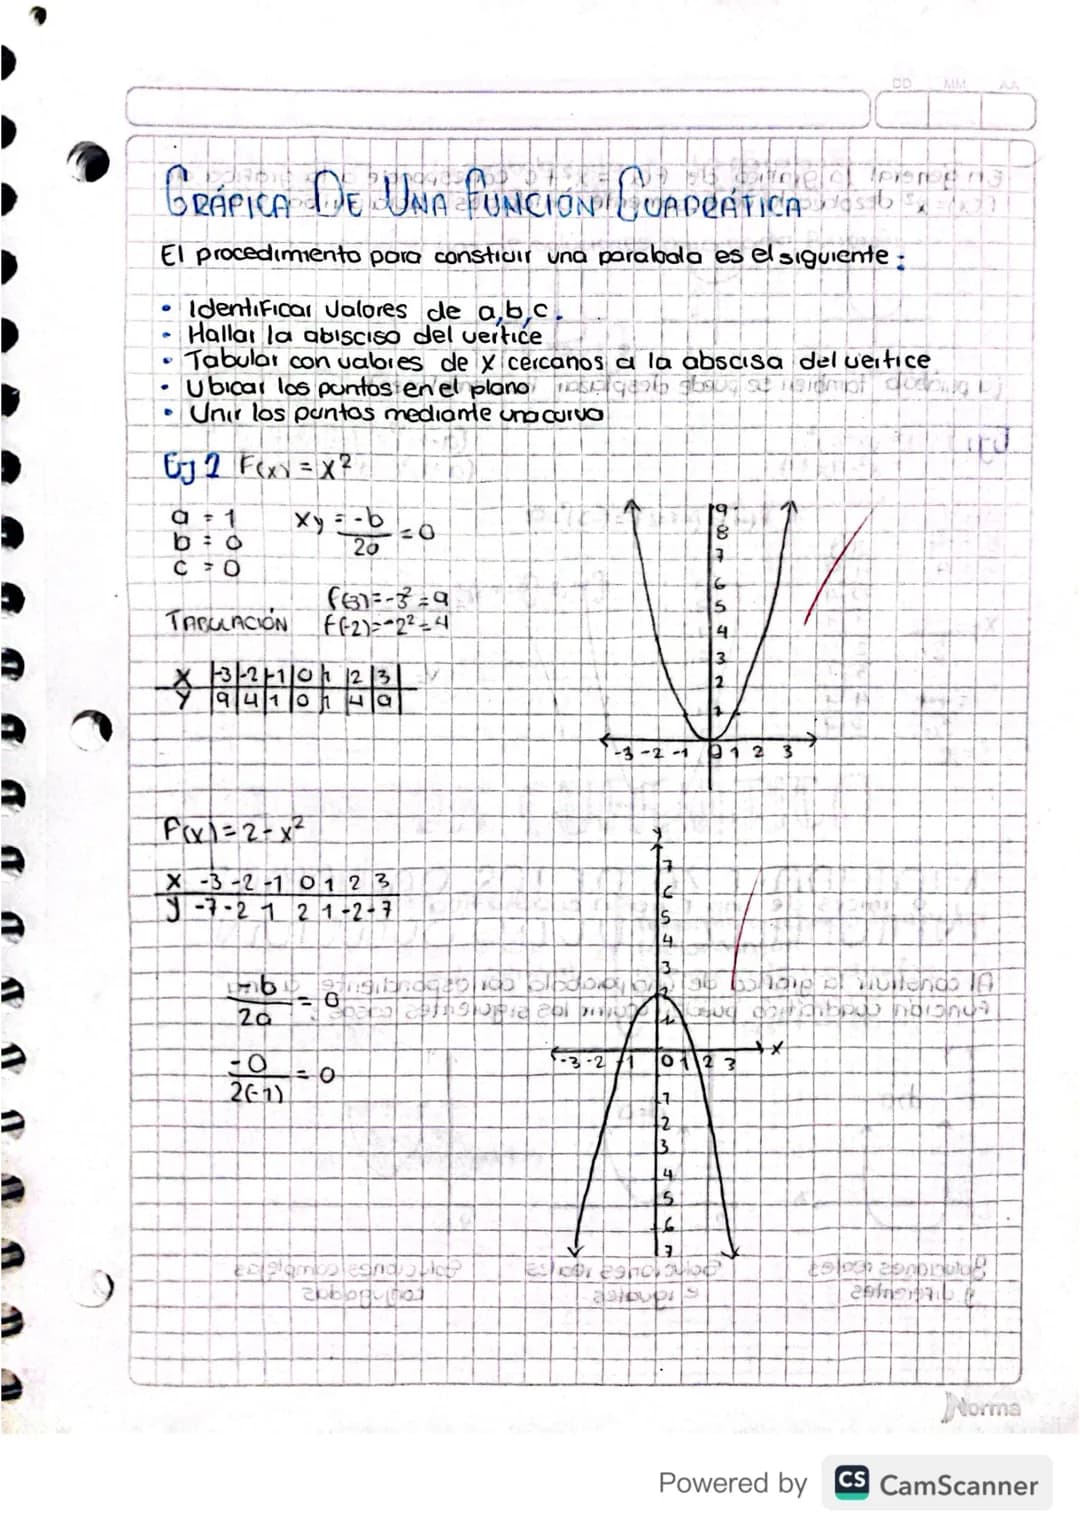 DD MM AA
GRÁFICA DE UNA FUNCIÓN CUADRÁTICA
El procedimiento para construir una parabola es el siguiente:
• Identificar valores de a,b,c.
• Hallar la abisciso del vertice
• Tabular con valores de x cercanos a la abscisa del vertice
• Ubicar los puntos en el plano
• Unir los puntos mediante una curva
Ej 1 F(x) = x²
a = 1
b = 0
c = 0
xy = -b/2a = 0
f(-3)=-3²=9
TABULACIÓN f(-2)=-2²=4
X -3 -2 -1 0 1 2 3
Y 9 4 1 0 1 4 9
9
8
7
6
5
4
3
2
1
-3 -2 -1 0 1 2 3
F(x)=2-x²
X -3 -2 -1 0 1 2 3
y -7 -2 1 2 1 -2 -7
2a = 0
-0/2(-1) = 0
y
7
6
5
4
3
2
1
-3 -2 -1 0 1 2 3 x
-1
2
3
4
5
6
7
Norma
Powered by CS CamScanner